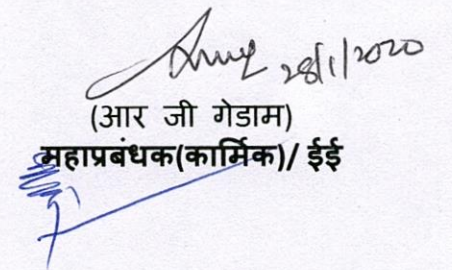 28/1/2020
(आर जी गेडाम)
महाप्रबंधक(कार्मिक)/ ईई